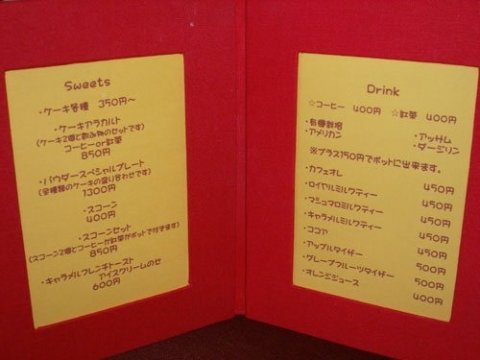 Sweets
・ケーキ各種 350円～
・ケーキアラカルト
(ケーキ2個と飲み物のセットです)
コーヒーor紅茶
850円
・パウダースペシャルプレート
(全種類のケーキの盛り合わせです)
1300円
・スコーン
400円
・スコーンセット
(スコーン2個とコーヒーか紅茶がポットで付きます)
850円
・キャラメルフレンチトースト
アイスクリームのせ
600円
Drink
☆コーヒー 400円 ☆紅茶 400円
・有機栽培 ・アッサム
・アメリカン ・ダージリン
※プラス150円でポットに出来ます。
・カフェオレ 450円
・ロイヤルミルクティー 450円
・マシュマロミルクティー 450円
・キャラメルミルクティー 450円
・ココア 450円
・アップルタイザー 500円
・グレープフルーツタイザー 500円
・オレンジジュース 400円